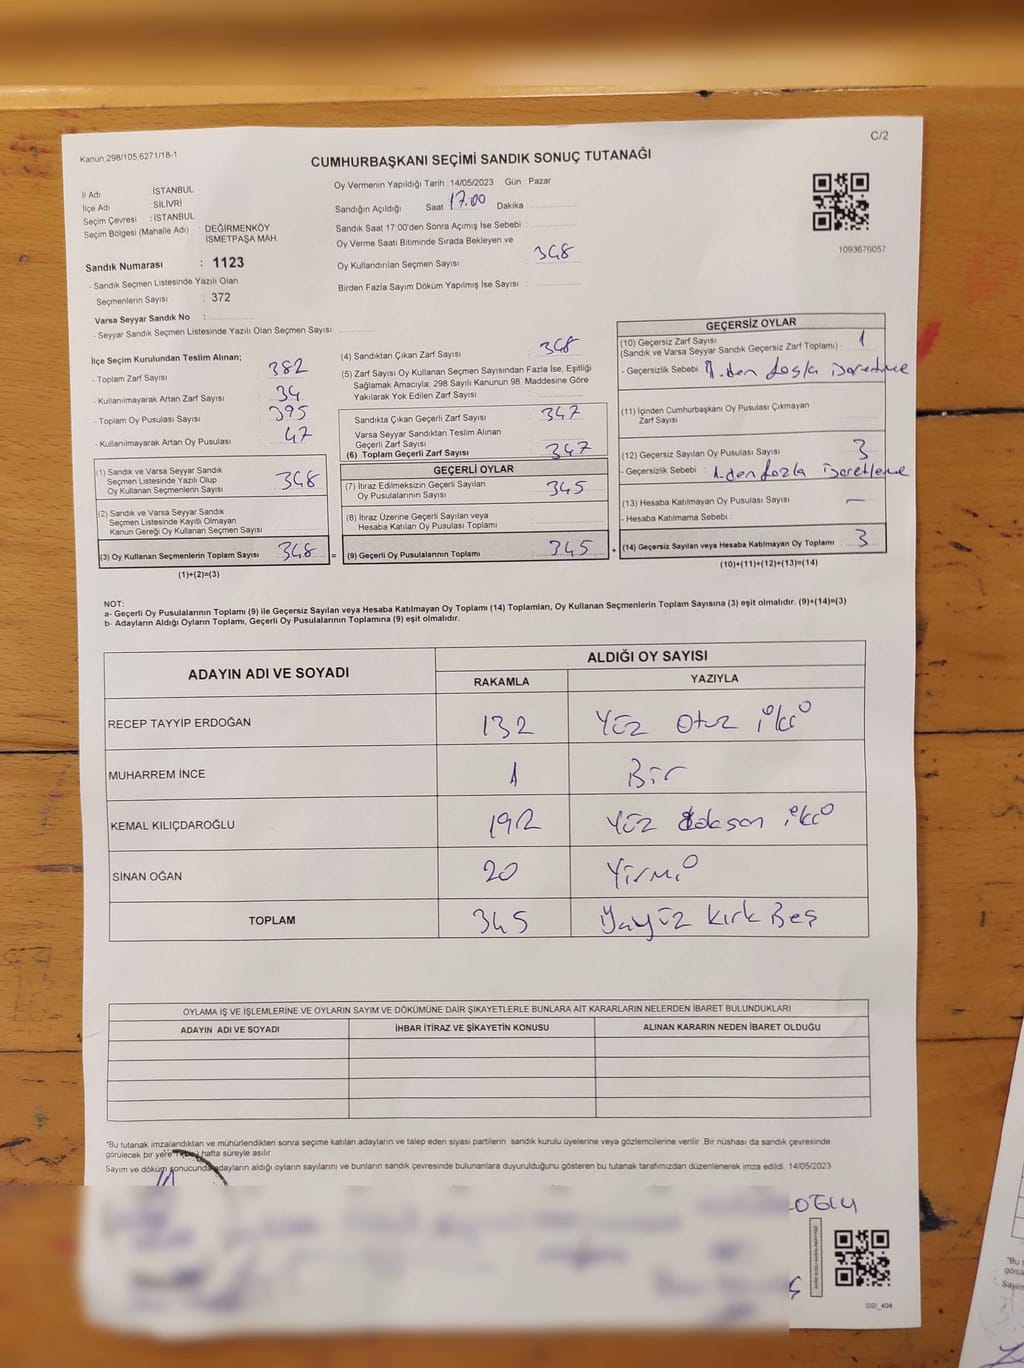 C/2
Kanun:298/105;6271/18-1
CUMHURBAŞKANI SEÇİMİ SANDIK SONUÇ TUTANAĞI
İl Adı : İSTANBUL
İlçe Adı : SİLİVRİ
Seçim Çevresi : İSTANBUL
Seçim Bölgesi (Mahalle Adı) : DEĞİRMENKÖY
İSMETPAŞA MAH.
Sandık Numarası : 1123
- Sandık Seçmen Listesinde Yazılı Olan
Seçmenlerin Sayısı : 372
Varsa Seyyar Sandık No :
- Seyyar Sandık Seçmen Listesinde Yazılı Olan Seçmen Sayısı:
Oy Vermenin Yapıldığı Tarih : 14/05/2023 Gün : Pazar
Sandığın Açıldığı Saat 17.00 Dakika :
Sandık Saat 17.00'den Sonra Açımış İse Sebebi :
Oy Verme Saati Bitiminde Sırada Bekleyen ve
Oy Kullandırılan Seçmen Sayısı : 348
Birden Fazla Sayım Döküm Yapılmış İse Sayısı :
1093676057
İlçe Seçim Kurulundan Teslim Alınan;
- Toplam Zarf Sayısı : 382
- Kullanılmayarak Artan Zarf Sayısı : 34
- Toplam Oy Pusulası Sayısı : 395
- Kullanılmayarak Artan Oy Pusulası : 47
(1) Sandık ve Varsa Seyyar Sandık
Seçmen Listesinde Yazılı Olup
Oy Kullanan Seçmenlerin Sayısı : 348
(2) Sandık ve Varsa Seyyar Sandık
Seçmen Listesinde Kayıtlı Olmayan
Kanun Gereği Oy Kullanan Seçmen Sayısı :
(3) Oy Kullanan Seçmenlerin Toplam Sayısı : 348
(1)+(2)=(3)
(4) Sandıktan Çıkan Zarf Sayısı : 348
(5) Zarf Sayısı Oy Kullanan Seçmen Sayısından Fazla İse, Eşitliği
Sağlamak Amacıyla; 298 Sayılı Kanunun 98. Maddesine Göre
Yakılarak Yok Edilen Zarf Sayısı :
Sandıkta Çıkan Geçerli Zarf Sayısı : 347
Varsa Seyyar Sandıktan Teslim Alınan
Geçerli Zarf Sayısı :
(6) Toplam Geçerli Zarf Sayısı : 347
GEÇERLİ OYLAR
(7) İtiraz Edilmeksizin Geçerli Sayılan
Oy Pusulalarının Sayısı : 345
(8) İtiraz Üzerine Geçerli Sayılan veya
Hesaba Katılan Oy Pusulası Toplamı :
= (9) Geçerli Oy Pusulalarının Toplamı : 345
GEÇERSİZ OYLAR
(10) Geçersiz Zarf Sayısı
(Sandık ve Varsa Seyyar Sandık Geçersiz Zarf Toplamı) : 1
- Geçersizlik Sebebi : 1.den fazla işaretleme
(11) İçinden Cumhurbaşkanı Oy Pusulası Çıkmayan
Zarf Sayısı :
(12) Geçersiz Sayılan Oy Pusulası Sayısı : 3
- Geçersizlik Sebebi : 1.den fazla işaretleme
(13) Hesaba Katılmayan Oy Pusulası Sayısı : —
- Hesaba Katılmama Sebebi :
+ (14) Geçersiz Sayılan veya Hesaba Katılmayan Oy Toplamı : 3
(10)+(11)+(12)+(13)=(14)
NOT:
a- Geçerli Oy Pusulalarının Toplamı (9) ile Geçersiz Sayılan veya Hesaba Katılmayan Oy Toplamı (14) Toplamları, Oy Kullanan Seçmenlerin Toplam Sayısına (3) eşit olmalıdır. (9)+(14)=(3)
b- Adayların Aldığı Oyların Toplamı, Geçerli Oy Pusulalarının Toplamına (9) eşit olmalıdır.
ADAYIN ADI VE SOYADI ALDIĞI OY SAYISI
RAKAMLA YAZIYLA
RECEP TAYYİP ERDOĞAN 132 Yüz Otuz iki
MUHARREM İNCE 1 Bir
KEMAL KILIÇDAROĞLU 192 Yüz doksan iki
SİNAN OĞAN 20 Yirmi
TOPLAM 345 Üçyüz Kırk Beş
OYLAMA İŞ VE İŞLEMLERİNE VE OYLARIN SAYIM VE DÖKÜMÜNE DAİR ŞİKAYETLERLE BUNLARA AİT KARARLARIN NELERDEN İBARET BULUNDUKLARI
ADAYIN ADI VE SOYADI İHBAR İTİRAZ VE ŞİKAYETİN KONUSU ALINAN KARARIN NEDEN İBARET OLDUĞU
*Bu tutanak imzalandıktan ve mühürlendikten sonra seçime katılan adayların ve talep eden siyasi partilerin sandık kurulu üyelerine veya gözlemcilerine verilir. Bir nüshası da sandık çevresinde
görülecek bir yere hafta süreyle asılır.
Sayım ve döküm sonucunda adayların aldığı oyların sayılarını ve bunların sandık çevresinde bulunanlara duyurulduğunu gösteren bu tutanak tarafımızdan düzenlenerek imza edildi. 14/05/2023
OĞLU
SSI_404